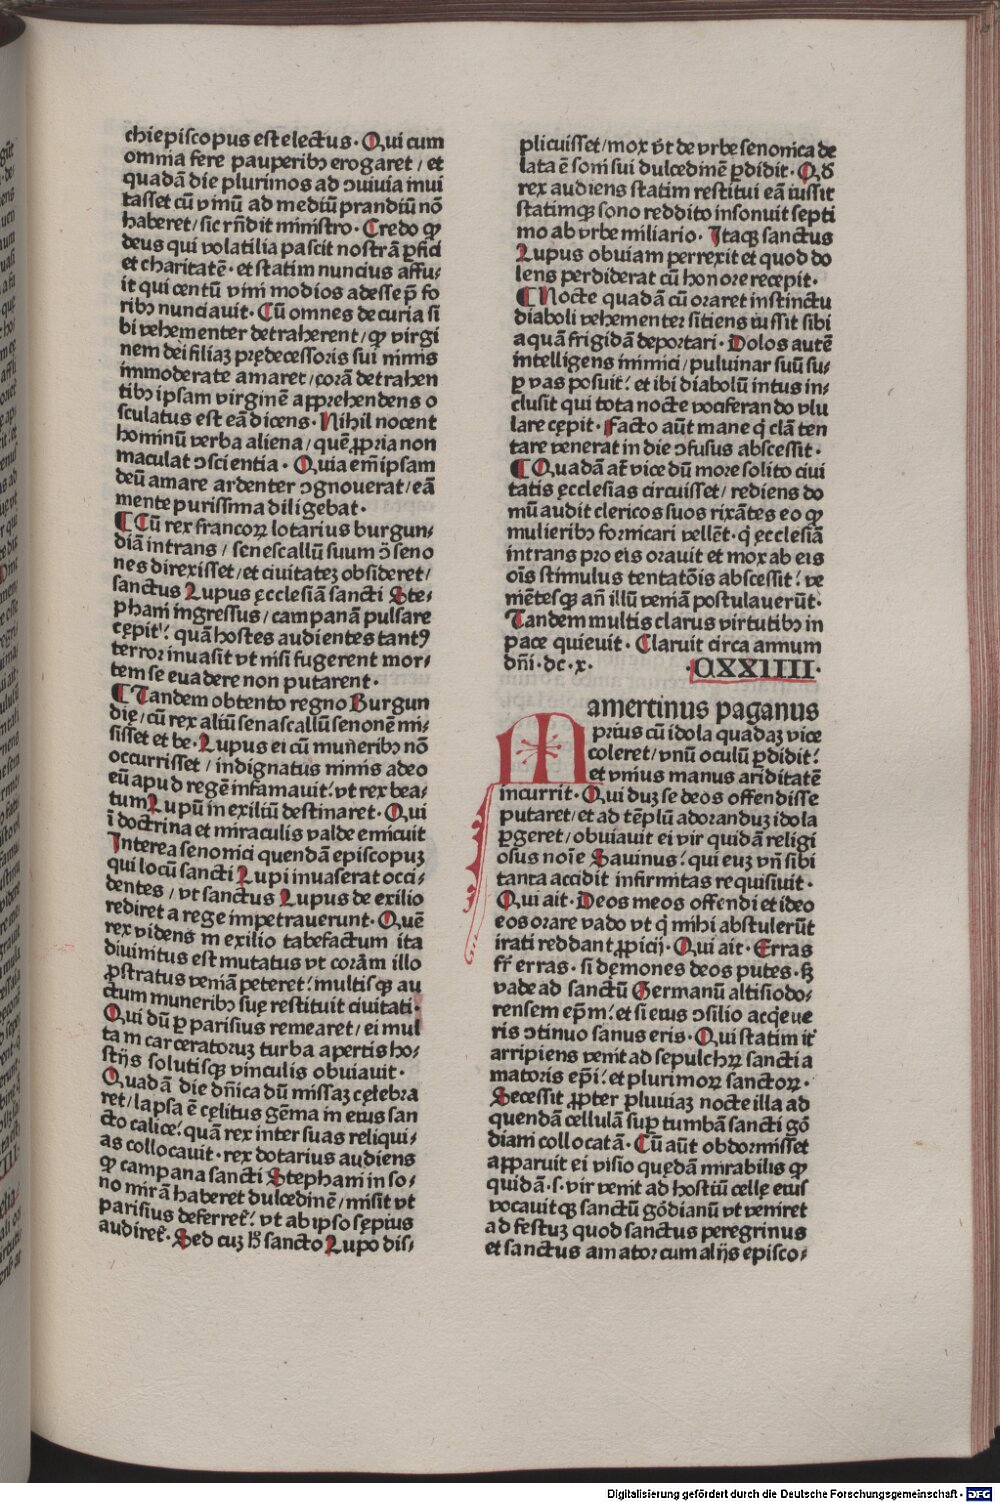 chiepiscopus est electus· Qui cum
omnia fere pauperibꝫ erogaret / et
quadā die plurimos ad ꝯuiuia inui
tasset cū vinū ad mediū prandiū nō
haberet / sic rñdit ministro· Credo ꝙ
deus qui volatilia pascit nostrā ꝑfici
et charitatē· et statim nuncius affu⸗
it qui centū vini modios adesse p̄ fo
ribꝫ nunciauit· Cū omnes de curia si
bi vehementer detraherent / ꝙ virgi
nem dei filiaꝫ pręcessoris sui nimis
immoderate amaret / corā detrahen
tibꝫ ipsam virginē apprehendens o
sculatus est eā dicens· Nihil nocent
hominū verba aliena / quē ꝓpria non
maculat ꝯscientia· Quia em̄ ipsam
deū amare ardenter ꝯgnouerat / eā
mente purissima diligebat·
¶ Cū rex francoꝝ lotarius burgun⸗
diā intrans / senescallū suum ꝯ̄ seno
nes direxisset / et ciuitateꝫ obsideret /
sanctus Lupus ęcclesiā sancti Ste⸗
phani ingressus / campanā pulsare
cępit· quā hostes audientes tantꝰ
terror inuasit vt nisi fugerent mor⸗
tem se euadere non putarent·
¶ Tandem obtento regno Burgun
dię / cū rex aliū senascallū senonē mi⸗
sisset et be· Lupus ei cū muneribꝫ nō
occurrisset / indignatus nimis adeo
eū apud regē infamauit· vt rex bea⸗
tum Lupū in exiliū destinaret· Qui
ī doctrina et miraculis valde emicuit
Interea senonici quendā episcopuꝫ
qui locū sancti Lupi inuaserat occi⸗
dentes / vt sanctus Lupus de exilio
rediret a rege impetrauerunt· Quē
rex videns in exilio tabefactum ita
diuinitus est mutatus vt corām illo
ꝓstratus veniā peteret· multisqꝫ au
ctum muneribꝫ suę restituit ciuitati·
Qui dū ꝑ parisius remearet / ei mul
ta in carceratoruꝫ turba apertis ho⸗
stijs solutisqꝫ vinculis obuiauit·
Quadā die dn̄ica dū missaꝫ cęlebra
ret / lapsa ē cęlitus gēma in eius san
cto calice· quā rex inter suas reliqui⸗
as collocauit· rex dotarius audiens
ꝙ campana sancti Stephani in so⸗
no mirā haberet dulcedinē / misit vt
parisius deferret· vt ab ipso sępius
audiret· Sed cuꝫ h̄ sancto Lupo dis⸗
plicuisset / mox vt de vrbe senonica de
lata ē soni sui dulcedinē ꝑdidit· Qd̄
rex audiens statim restitui eā iussit
statimqꝫ sono reddito insonuit septi
mo ab vrbe miliario· Itaqꝫ sanctus
Lupus obuiam perrexit et quod do
lens perdiderat cū honore recepit·
¶ Nocte quadā cū oraret instinctu
diaboli vehementer sitiens iussit sibi
aquā frigidā deportari· Dolos autē
intelligens inimici / puluinar suū su⸗
ꝑ vas posuit· et ibi diabolū intus in⸗
clusit qui tota nocte vociferando vlu
lare cępit· Facto aūt mane q̇ clā ten
tare venerat in die ꝯfusus abscessit·
¶ Quadā at̄ vice dū more solito ciui
tatis ęcclesias circuisset / rediens do
mū audit clericos suos rixātes eo ꝙ
mulieribꝫ fornicari vellēt· q̇ ęcclesiā
intrans pro eis orauit et mox ab eis
oīs stimulus tentatōis abscessit· ve
niētesqꝫ an̄ illū veniā postulauerūt·
Tandem multis clarus virtutibꝫ in
pace quieuit· Claruit circa annum
dn̄i· dc· x·
·CXXIIII·
Mamertinus paganus
prius cū idola quadaꝫ vice
coleret / vnū oculū ꝑdidit·
et vnius manus ariditatē
incurrit· Qui duꝫ se deos offendisse
putaret / et ad tēplū adoranduꝫ idola
ꝑgeret / obuiauit ei vir quidā religi
osus noīe Sauinus· qui euꝫ vn̄ sibi
tanta accidit infirmitas requisiuit·
Qui ait· Deos meos offendi et ideo
eos orare vado vt q̇ mihi abstulerūt
irati reddant ꝓpicij· Qui ait· Erras
fr̄ erras· si dęmones deos putes· sꝫ
vade ad sanctū Germanū altisiodo⸗
rensem ep̄m· et si eius ꝯsilio acq̇eue
ris ꝯtinuo sanus eris· Qui statim it̄
arripiens venit ad sepulchꝝ sancti a
matoris ep̄i· et plurimoꝝ sanctoꝝ·
Secessit ꝓpter pluuiaꝫ nocte illa ad
quendā cellulā suꝑ tumbā sancti gō
diani collocatā· Cū aūt obdormisset
apparuit ei visio quędā mirabilis ꝙ
quidā· s· vir venit ad hostiū cellę eius
vocauitqꝫ sanctū gōdianū vt veniret
ad festuꝫ quod sanctus peregrinus
et sanctus amator cum alijs episco⸗
Digitalisierung gefördert durch die Deutsche Forschungsgemeinschaft · DFG